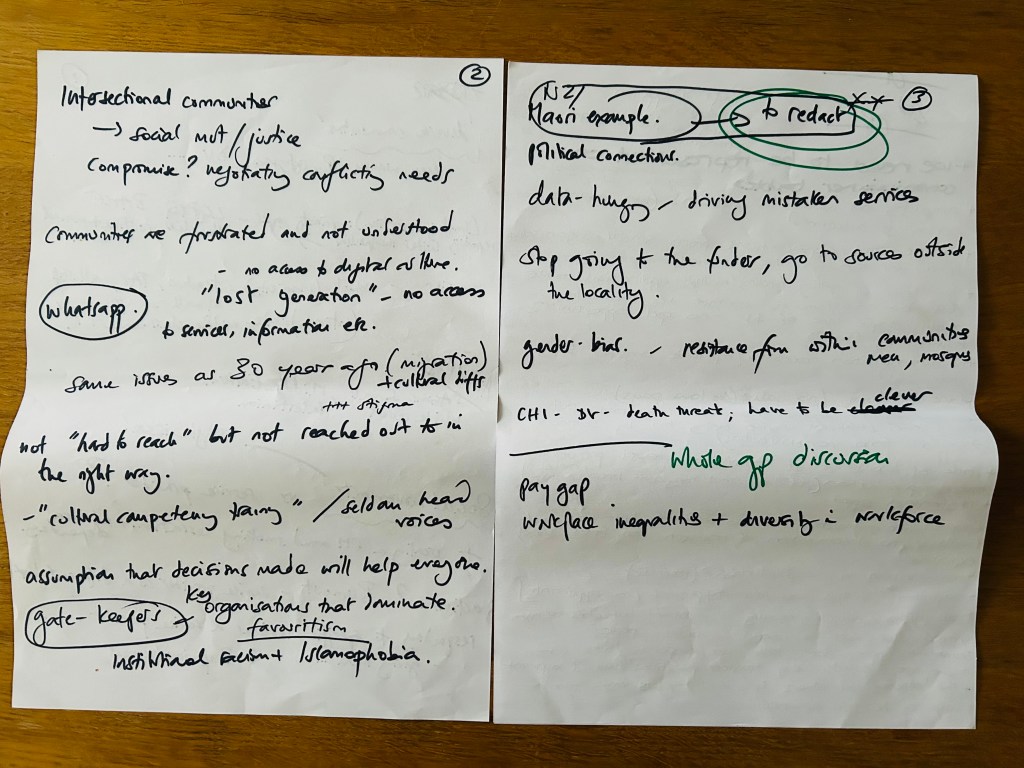 ②
Intersectional communities
→ social mvt / justice
compromise? negotiating conflicting needs
Communities are frustrated and not understood
- no access to digital culture.
"lost generation" - no access
whatsapp.
to services, information etc.
same issues as 30 years ago (migration)
+ cultural diffs
+++ stigma
not "hard to reach" but not reached out to in
the right way.
- "cultural competency training" / seldom heard
voices
assumption that decisions made will help everyone.
gate-keepers - key organisations that dominate.
favouritism
institutional racism + Islamophobia.
③
NZ/
Maori example. → to redact xx
political connections.
data-hungry / driving mistaken services
stop going to the funder, go to sources outside
the locality.
gender-bias. / resistance from within communities
men, mosques
CHI - DV - death threat; have to be clever
whole gp discussion
pay gap
workplace inequalities + diversity in workforce